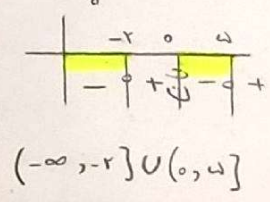 -۲ ۰ ۵
- + ن - +
(-∞, -۲] ∪ (۰, ۵]